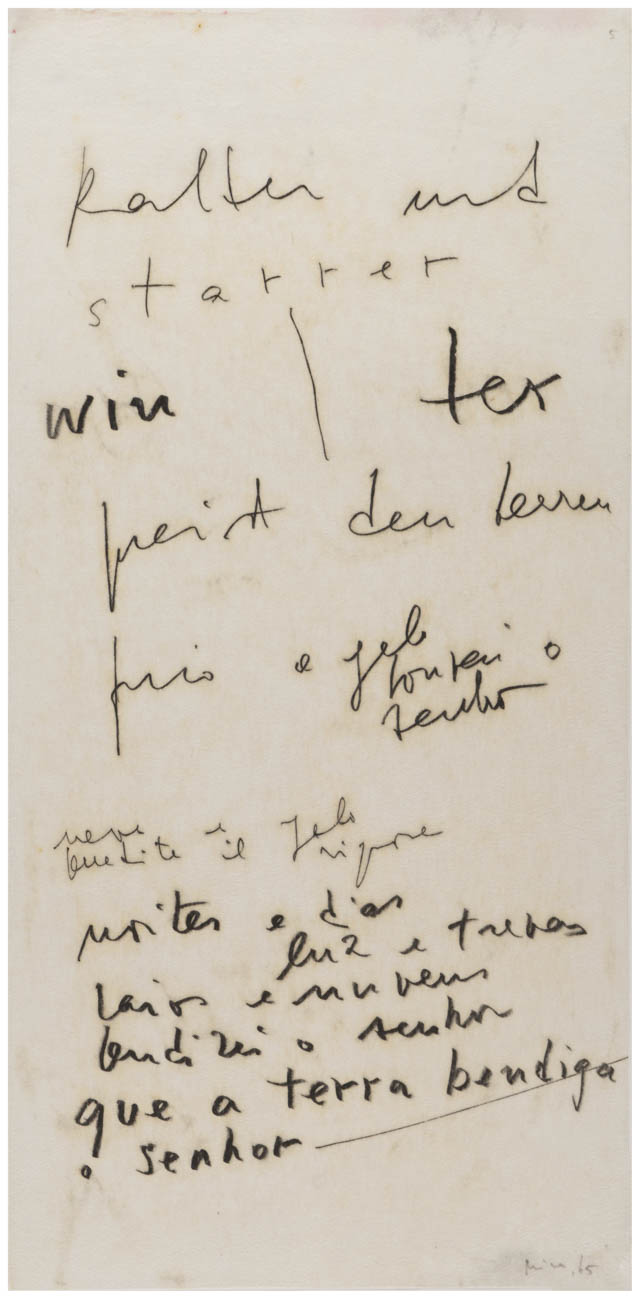 5
kalter und
starrer
win ter
preist den herren
frio e gelo
louvai o
senhor
neve e gelo
benedite il signore
noites e dias
luz e trevas
raios e nuvens
bendizei o senhor
que a terra bendiga
o senhor